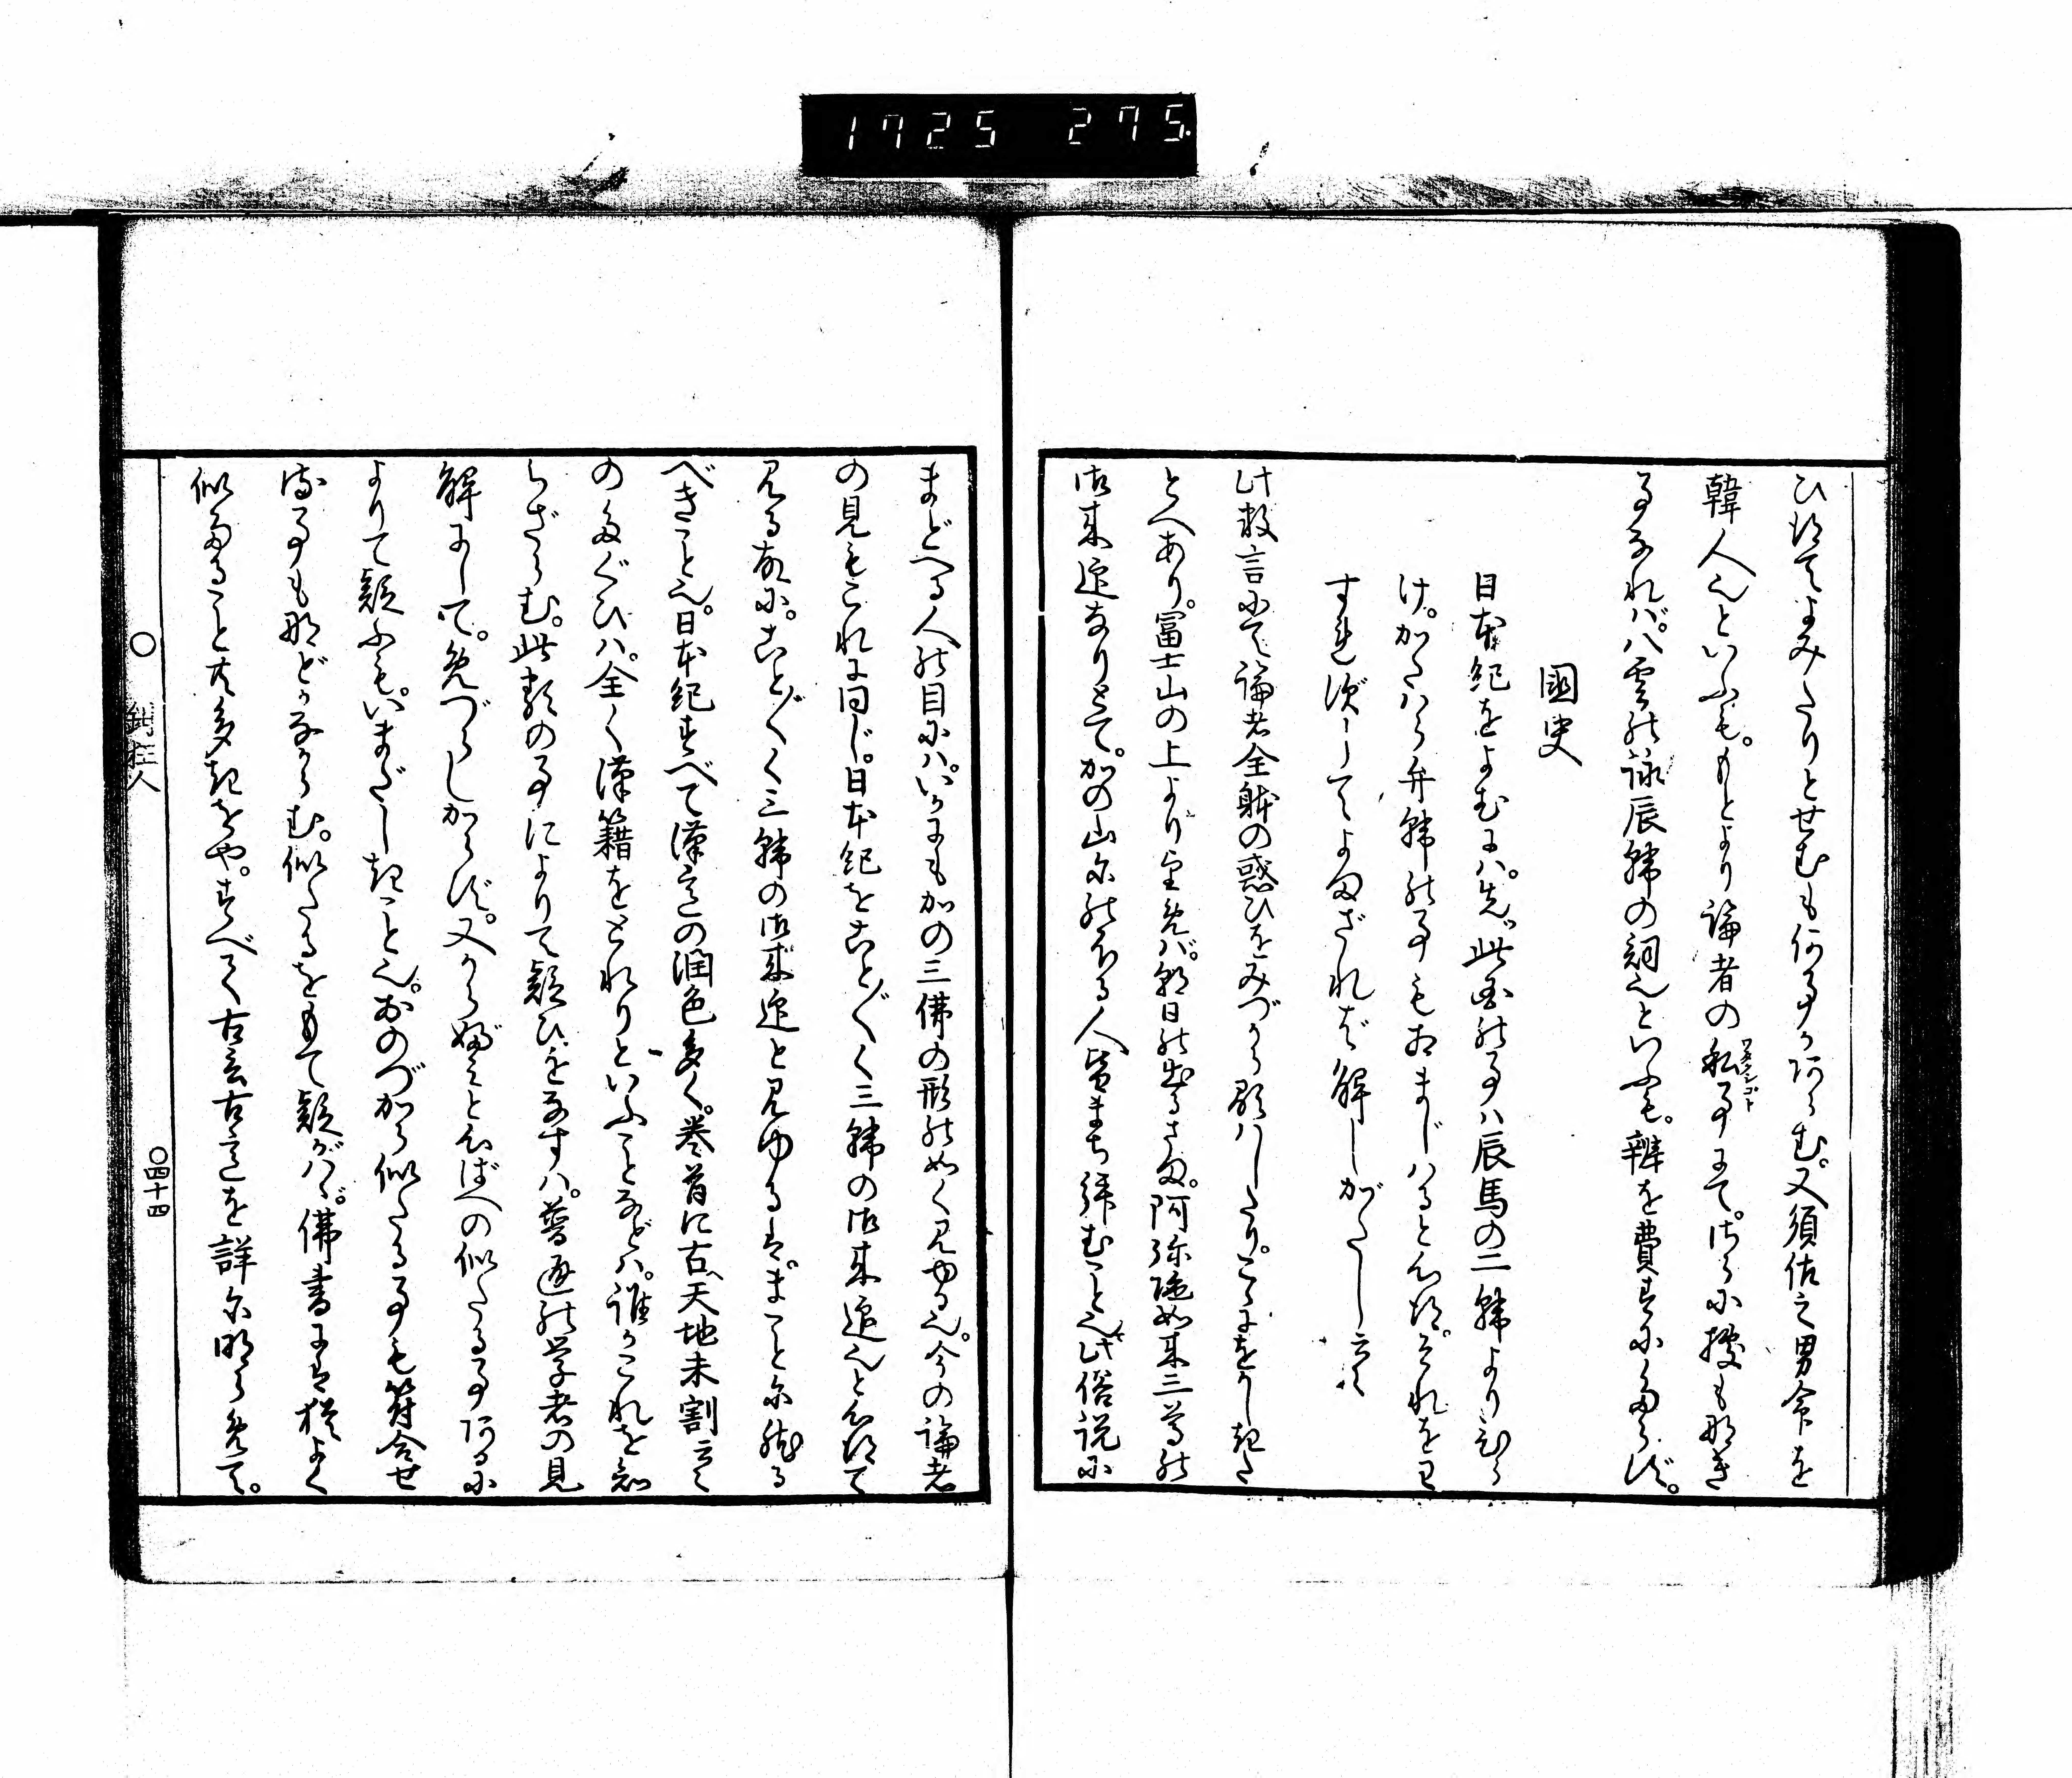 1725 275.
ひ給てよみたりとせむも何事かあらむ。又須佐之男命を
韓人也といふも。もとより論者の私事にて。さらに據も那き
事なれバ。八雲の詠辰韓の詞也といふも。辨を費すにたらず。
ワタクシゴト
國史
日本紀をよむにハ。先此国の事ハ辰馬の二韓よりひら
け。かたハら弁韓の事もあまじハると心得。それをわ
すれずしてよまざれバ解しがたし云々
此数言にて論者全躰の惑ひをみづから顕ハしたり。こゝにをかしきた
とへあり。冨士山の上より望めバ。朝日の出るさま。阿弥陀如来三尊の
御来迎なりとて。かの山にのぼる人皆まち拝むこと也。此俗説に
まどへる人の目にハ。いかにもかの三佛の形の如く見ゆる也。今の論者
の見もこれに同じ。日本紀をことごとく三韓の御来迎也と心得て
見る故に。ことごとく三韓の御来迎と見ゆるは。まことに然る
べきこと也。日本紀すべて漢意の潤色多く。巻首に古天地未割云々
のたぐひハ。全く漢籍をとれりといふことなどハ。誰かこれを知
らざらむ。此類の事によりて疑ひをなすハ。普通の学者の見
解にして。めづらしからず。又から婦みと心ばへの似たる事あるに
よりて疑ふも。いまだしきこと也。おのづから似たる事も符合せ
る事も那どかなからむ。似たるをもて疑がハゞ。佛書には猶よく
似たること共多きをや。すべて古言古意を詳に明らめて。
○ 鉗狂人
○四十四